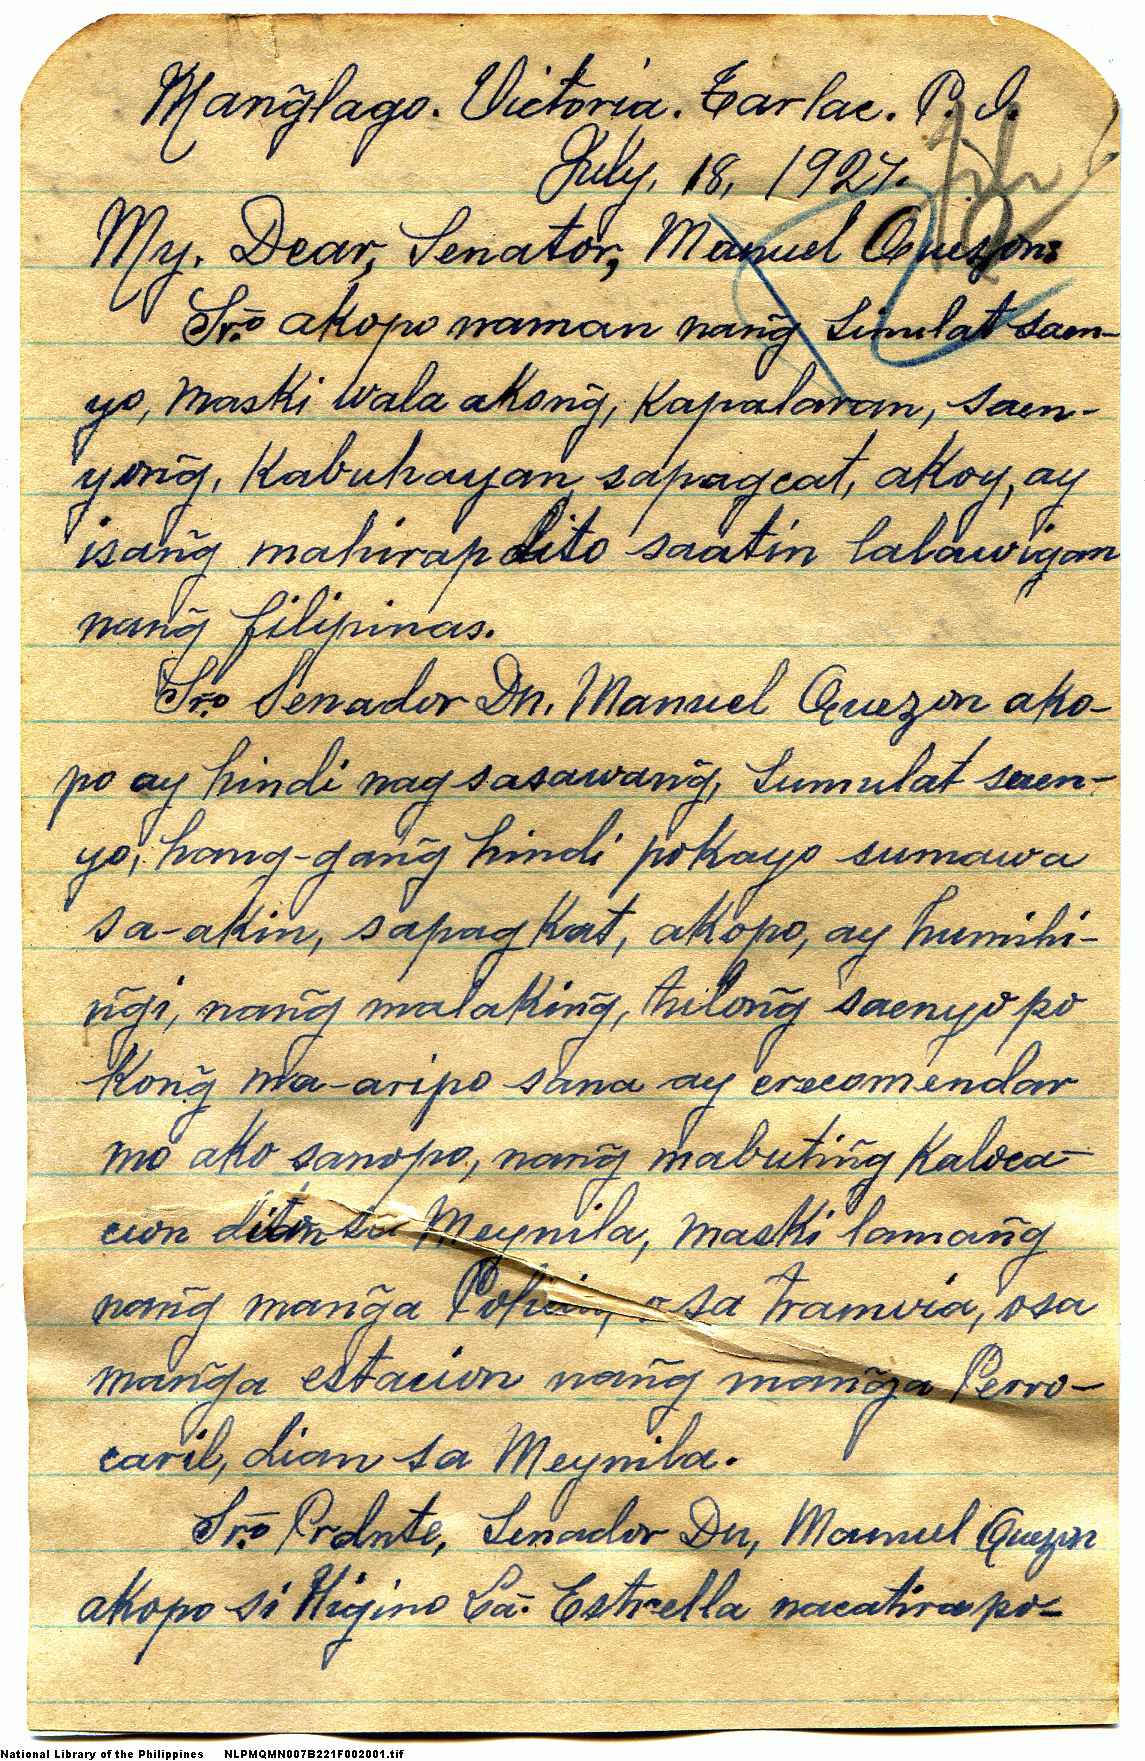 Mang̃lago. Victoria. Tarlac. P. I.
July, 18, 1927.
My, Dear, Senator, Manuel Quezon:
Sr̃o akopo naman nang̃ sinulat saen-
yo, maski wala akong̃, kapalaran, saen-
yong̃, kabuhayan, sapagcat, akoy, ay
isang̃ mahirap dito saatin lalawigan
nang̃ filipinas.
Sr̃o Senador Dn. Manuel Quezon ako-
po ay hindi nagsasawang̃, sumulat saen-
yo, hang-gang̃ hindi pokayo sumawa
sa-akin, sapagkat, akopo, ay humihi-
ng̃i, nang̃ malaking̃, tulong̃ saenyo po
kong̃ ma-aripo sana ay erecomendar
mo ako sanopo, nang̃ mabuting̃ kaloca-
cion sa Meynila, maski lamang̃
nang̃ mang̃a Policia, o sa tramvia, osa
mang̃a estacion nang̃ mang̃a Perro-
caril, dian sa Meynila.
Sr̃o Prdnte, Senador Dn, Manuel Quezon
akopo si Higino La. Estrella nacatira po-
National Library of the Philippines NLPMQMN007B221F002001.tif